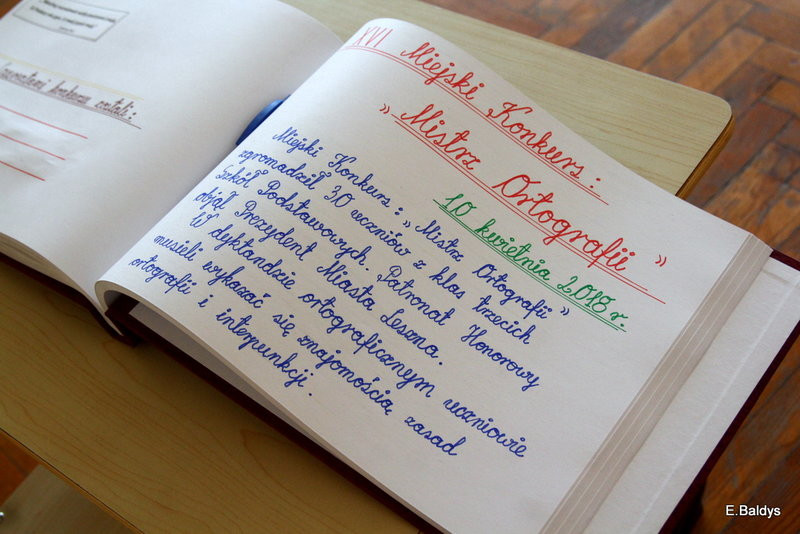 konkursu zostali:
XVI Miejski Konkurs:
„Mistrz Ortografii"
10 kwietnia 2018 r.
Miejski Konkurs: „Mistrz Ortografii"
zgromadził 30 uczniów z klas trzecich
Szkół Podstawowych. Patronat Honorowy
objął Prezydent Miasta Leszna.
W dyktandzie ortograficznym uczniowie
musieli wykazać się znajomością zasad
ortografii i interpunkcji.
E.Baldys